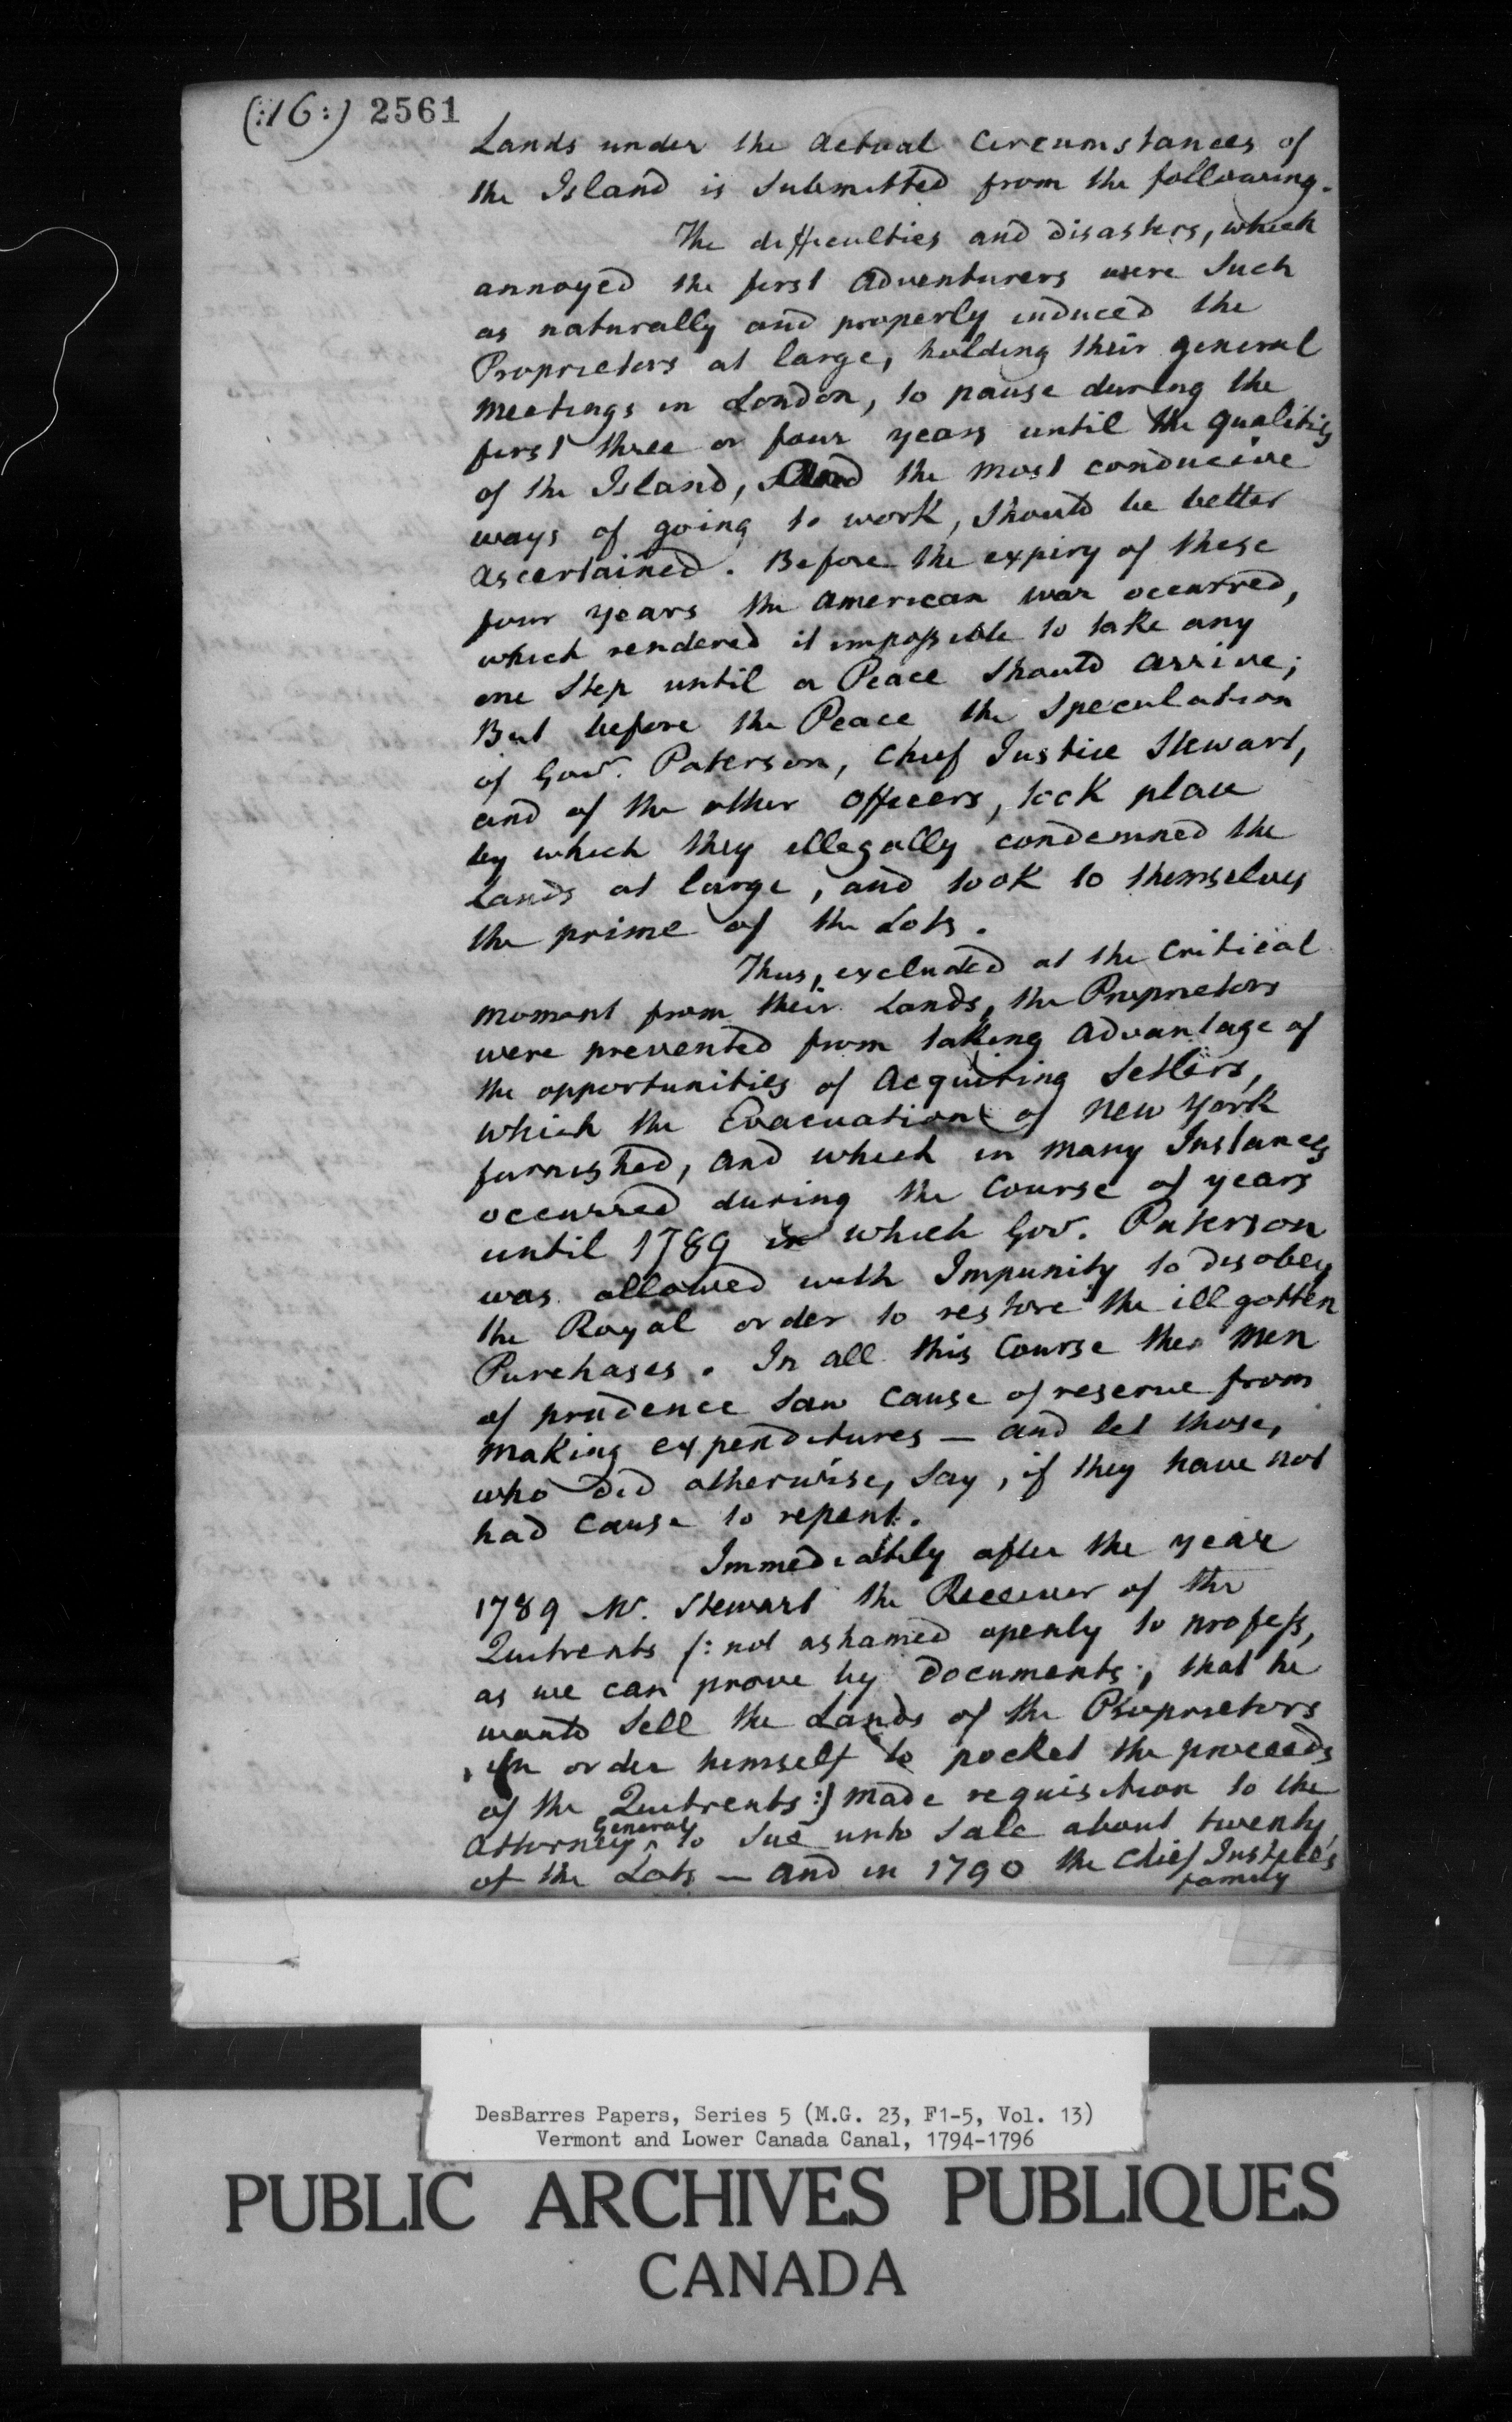 (:16:) 2561
Lands under the actual Circumstances of
the Island is Submitted from the following.
The difficulties and disasters, which
annoyed the first Adventurers were Such
as naturally and properly induced the
Proprietors at large, holding their general
Meetings in London, to pause during the
first three or four years until the qualities
of the Island, and the most conducive
ways of going to work, Should be better
Ascertained. Before the expiry of these
four years the American war occurred,
which rendered it impossible to take any
one Step until a Peace Should arrive;
But before the Peace the Speculation
of Govr. Paterson, Chief Justice Stewart,
and of the other Officers, took place
by which they illegally condemned the
Lands at large, and took to themselves
the prime of the Lots.
Thus, excluded at the Critical
moment from their Lands, the Proprietors
were prevented from taking advantage of
the opportunities of Acquiring Setlers,
which the Evacuation of New York
furnished, and which in many Instances
occurred during the Course of years
until 1789 in which Gov. Paterson
was allowed with Impunity to disobey
the Royal order to restore the ill gotten
Purchases. In all this Course the Men
of prudence Saw Cause of reserve from
Making expenditures — and let those,
who did otherwise, Say, if they have not
had Cause to repent.
Immediately after the year
1789 Mr. Stewart the Receiver of the
Quitrents (: not ashamed openly to profess,
as we can prove by Documents, that he
wants Sell the Lands of the Proprietors
in order himself to pocket the proceeds
of the Quitrents :) Made requisition to the
Attorney General to Sue unto Sale about twenty
of the Lots — and in 1790 the Chief Justice's
family
DesBarres Papers, Series 5 (M.G. 23, F1-5, Vol. 13)
Vermont and Lower Canada Canal, 1794-1796
PUBLIC ARCHIVES PUBLIQUES
CANADA